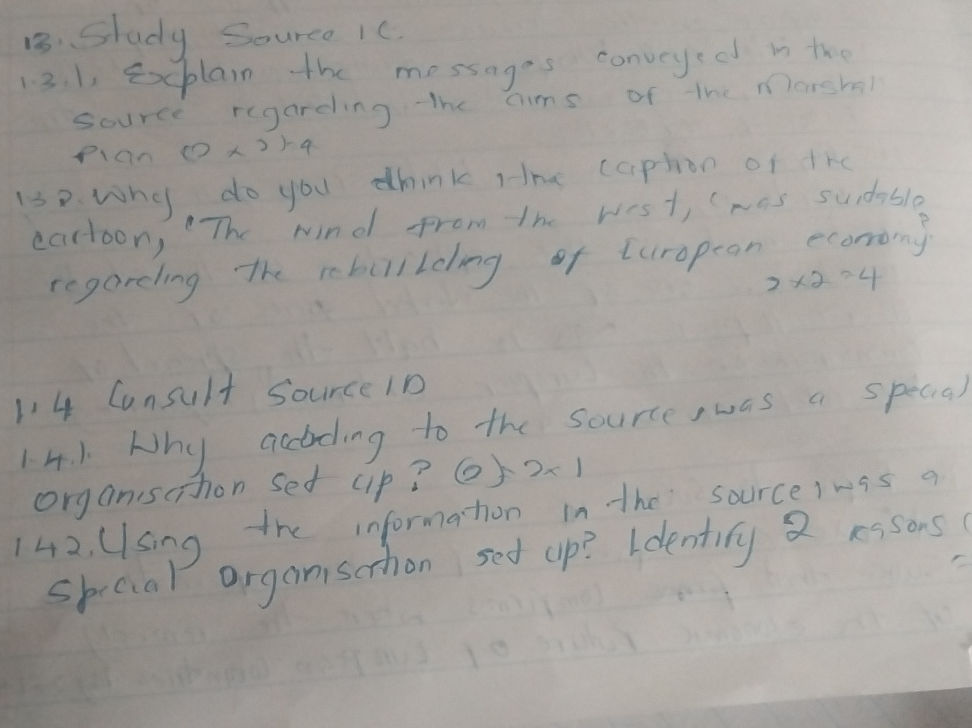 13. Study Source 1C.
1.3.1. Explain the messages conveyed in the
source regarding the aims of the Marshal
Plan (2 x 2) 4
132. Why do you think the caption of the
cartoon, "The wind from the West, was suidable
regarding the rebuilding of European economy?
2x2=4
1.4 Consult Source 1D
1.4.1. Why according to the source, was a special
organisation set up? 2x1
142. Using the information in the source, was a
special organisation set up? Identify 2 reasons